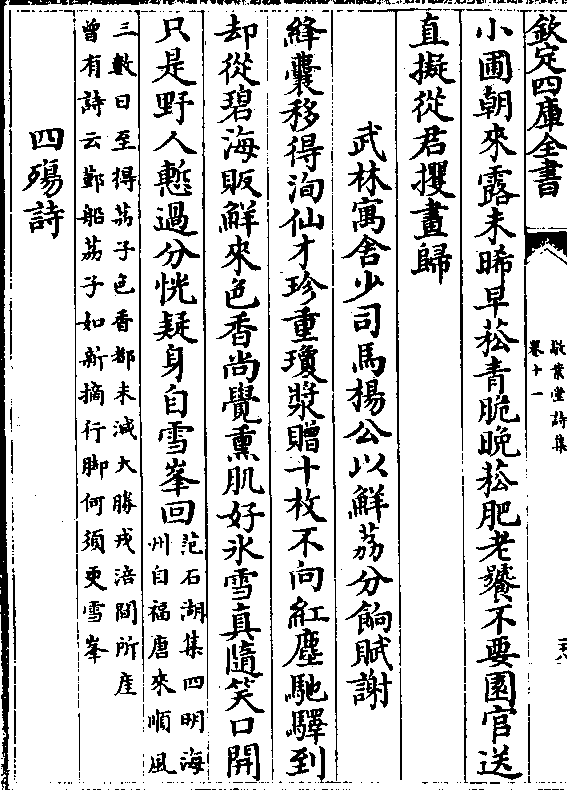 欽定四庫全書
敬業堂詩集
卷十一
小圃朝來露未晞早菘青脆晚菘肥老饕不要園官送
直擬從君攫畫歸
武林寓舍少司馬楊公以鮮荔分餉賦謝
絳囊移得洵仙才珍重瓊漿贈十枚不向紅塵馳驛到
却從碧海販鮮來色香尚覺熏肌好氷雪真隨笑口開
只是野人慙過分恍疑身自雪峯回
范石湖集四明海
州自福唐來順風
三數日至得荔子色香都未減大勝戎涪間所產
曾有詩云鄞船荔子如新摘行脚何須更雪峯
四殤詩